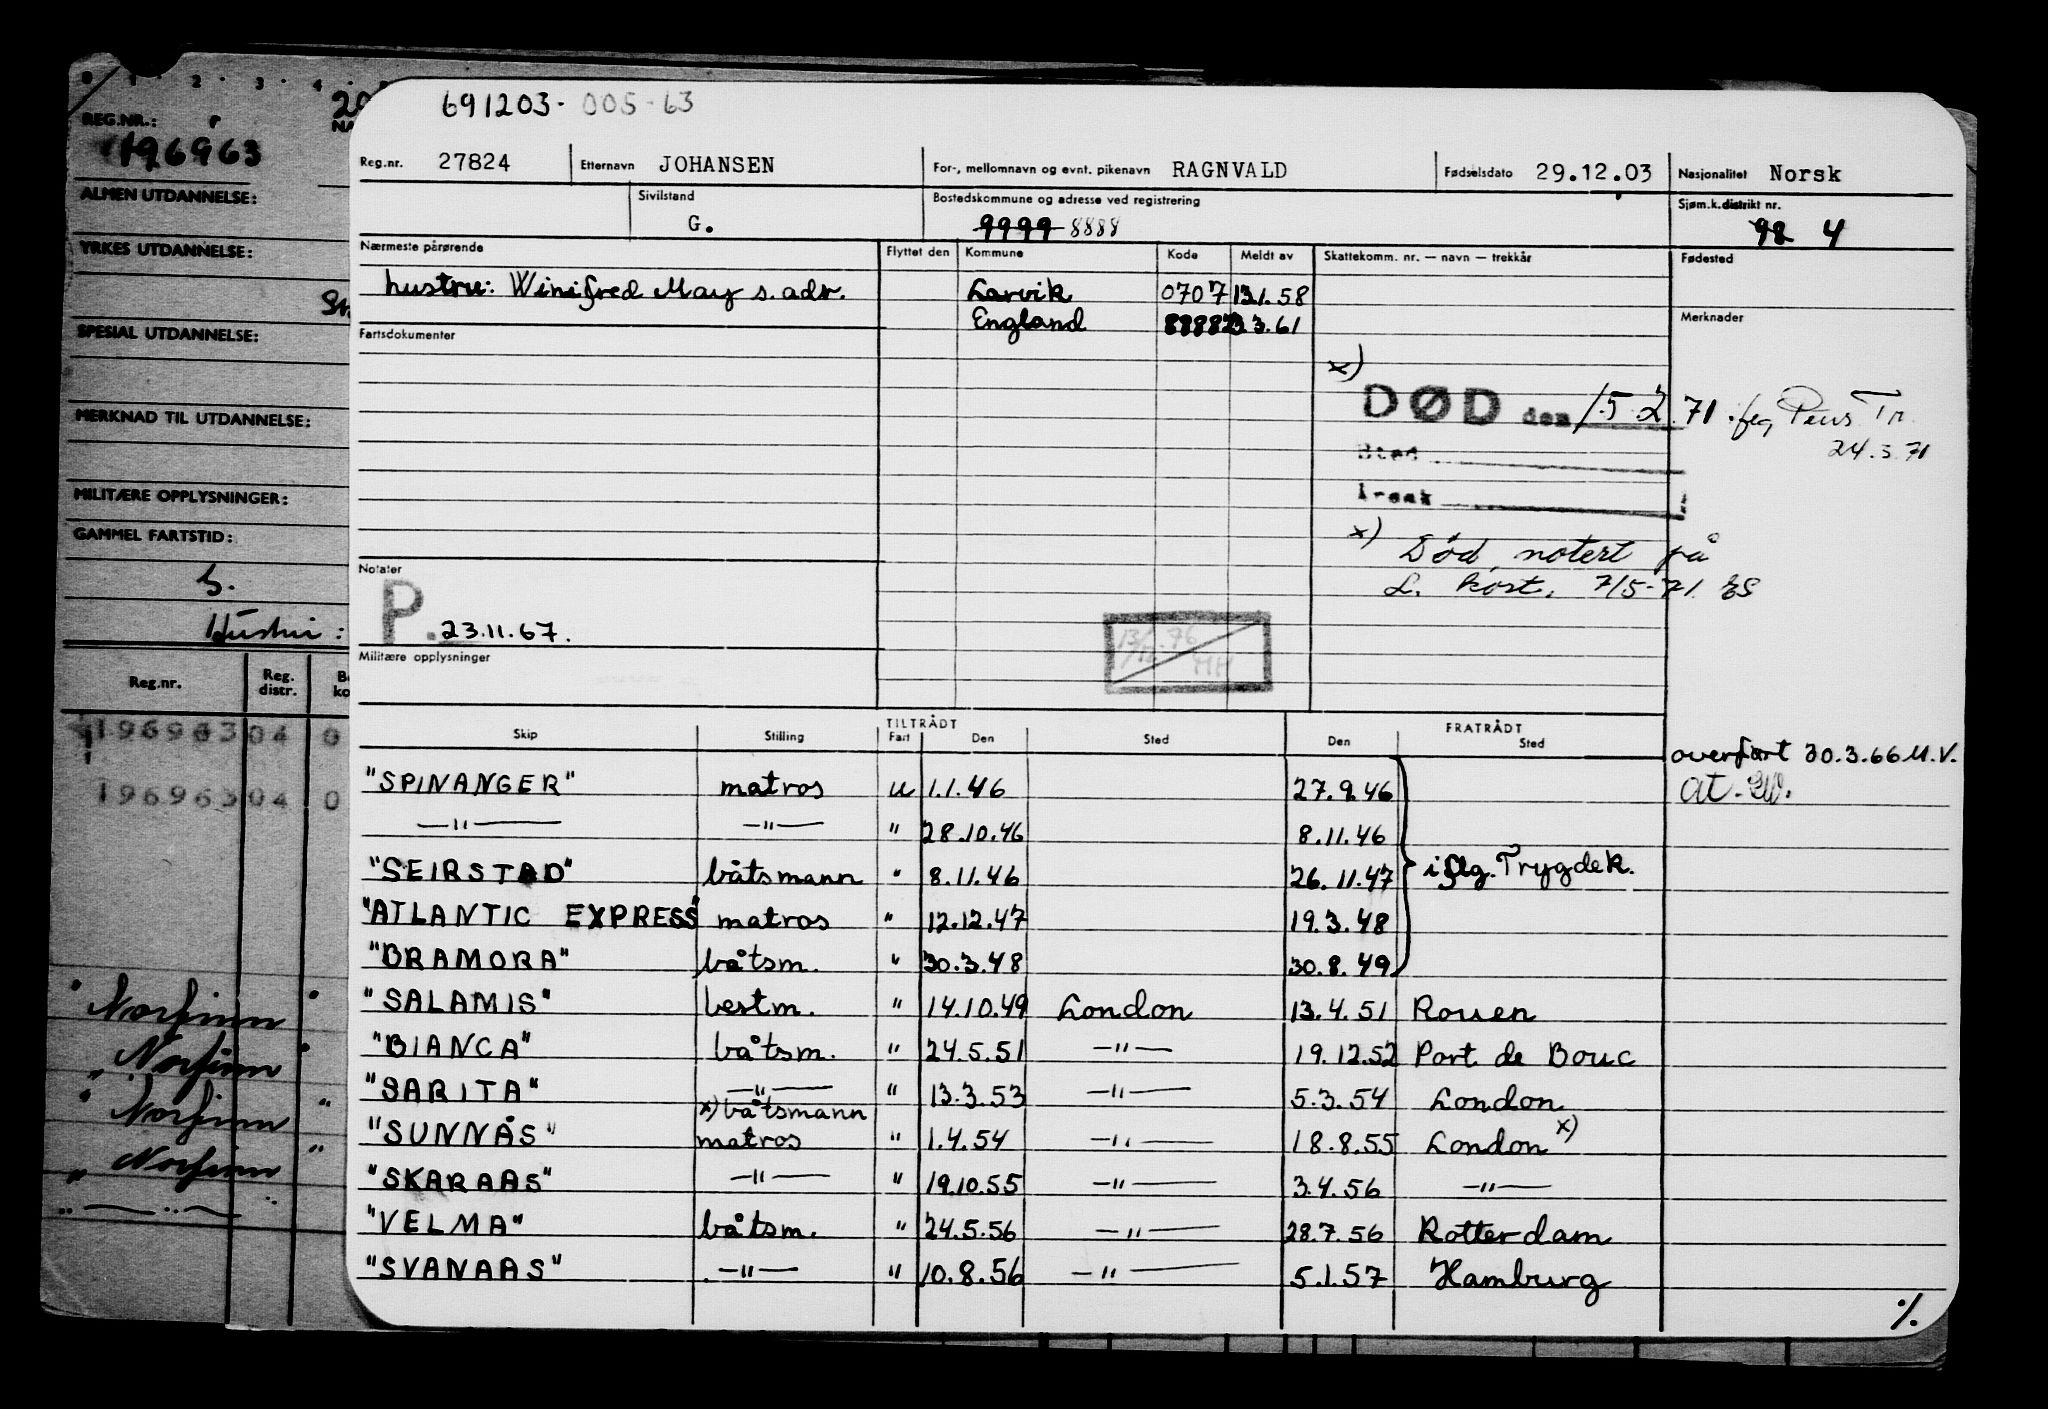 691203-005-63
Reg.nr. 27824 Etternavn JOHANSEN For-, mellomnavn og evnt. pikenavn RAGNVALD Fødselsdato 29.12.03 Nasjonalitet Norsk
Sivilstand G. Bostedskommune og adresse ved registrering 9999 8888 Sjøm.k.distrikt nr. 98 4
Nærmeste pårørende Flyttet den Kommune Kode Meldt av Skattekomm. nr. — navn — trekkår Fødested
hustru: Winifred May s. adr. Larvik 0707 13.1.58
England 8888 23.3.61
Fartsdokumenter Merknader
x)
DØD den 15.2.71. flg Pens Tr.
24.3.71
Sted
Årsak
x) Død, notert på
L. kort. 7/5-71 ES
Notater
P. 23.11.67.
13/12.76 MH
Militære opplysninger
TILTRÅDT FRATRÅDT
Skip Stilling Fart Den Sted Den Sted
overført 30.3.66 U.V.
"SPINANGER" matros u 1.1.46 27.9.46
at.
—"— —"— " 28.10.46 8.11.46
"SEIRSTAD" båtsmann " 8.11.46 26.11.47 iflg. Trygdek.
"ATLANTIC EXPRESS" matros " 12.12.47 19.3.48
"BRAMORA" båtsm. " 30.3.48 30.8.49
"SALAMIS" bestm. " 14.10.49 London 13.4.51 Rouen
"BIANCA" båtsm. " 24.5.51 —"— 19.12.52 Port de Bouc
"SARITA" —"— " 13.3.53 —"— 5.3.54 London
x) båtsmann
"SUNNÅS" matros " 1.4.54 —"— 18.8.55 London x)
"SKARAAS" —"— " 19.10.55 —"— 3.4.56 —"—
"VELMA" båtsm. " 24.5.56 —"— 28.7.56 Rotterdam
"SVANAAS" —"— " 10.8.56 —"— 5.1.57 Hamburg
%
0 1 2 3 4
REG.NR.:
196963
ALMEN UTDANNELSE:
YRKES UTDANNELSE:
SPESIAL UTDANNELSE:
MERKNAD TIL UTDANNELSE:
MILITÆRE OPPLYSNINGER:
GAMMEL FARTSTID:
Hustru:
Reg.nr. Reg. distr.
196963 04 0
196963 04 0
Norfinn
Norfinn
Norfinn
Norfinn